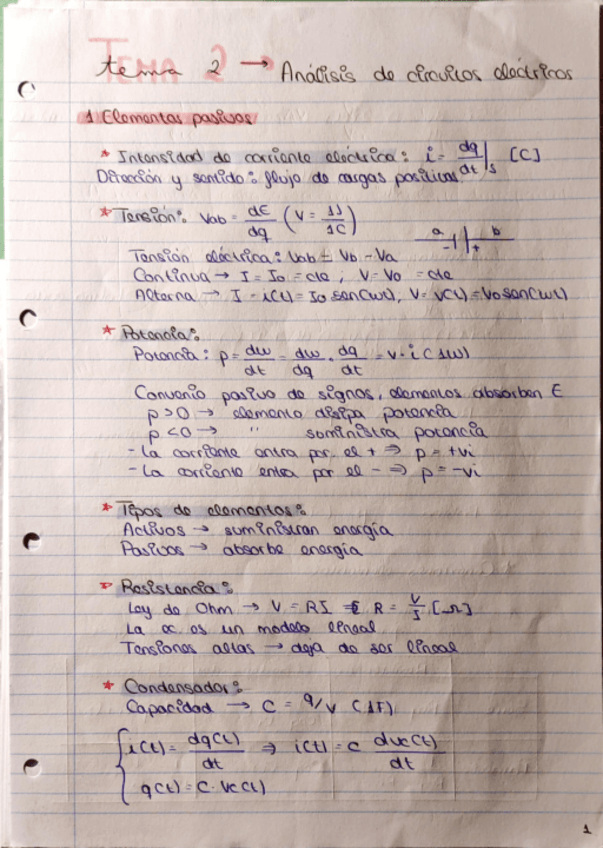 Tema 2 → Análisis de circuitos eléctricos
1 Elementos pasivos
* Intensidad de corriente eléctrica: i = dq/dt |s [C]
Dirección y sentido: flujo de cargas positivas.
* Tensión: Vab = dE/dq (V = 1J/1C)
a -||+ b
Tensión eléctrica: Vab = Vb - Va
Continua → I = Io = cte ; V = Vo = cte
Alterna → I = i(t) = Io sen(wt), V = V(t) = Vo sen(wt)
* Potencia:
Potencia: p = dw/dt = dw/dq · dq/dt = v·i (1W)
Convenio pasivo de signos, elementos absorben E
p > 0 → elemento disipa potencia
p < 0 → " suministra potencia
- La corriente entra por el + ⇒ p = +vi
- La corriente entra por el - ⇒ p = -vi
* Tipos de elementos:
Activos → suministran energía
Pasivos → absorbe energía
* Resistencia:
Ley de Ohm → V = RI R = V/I [Ω]
La es un modelo lineal
Tensiones altas → deja de ser lineal
* Condensador:
Capacidad → C = q/v (1F)
i(t) = dq(t)/dt ⇒ i(t) = C dvc(t)/dt
q(t) = C · Vc(t)
1